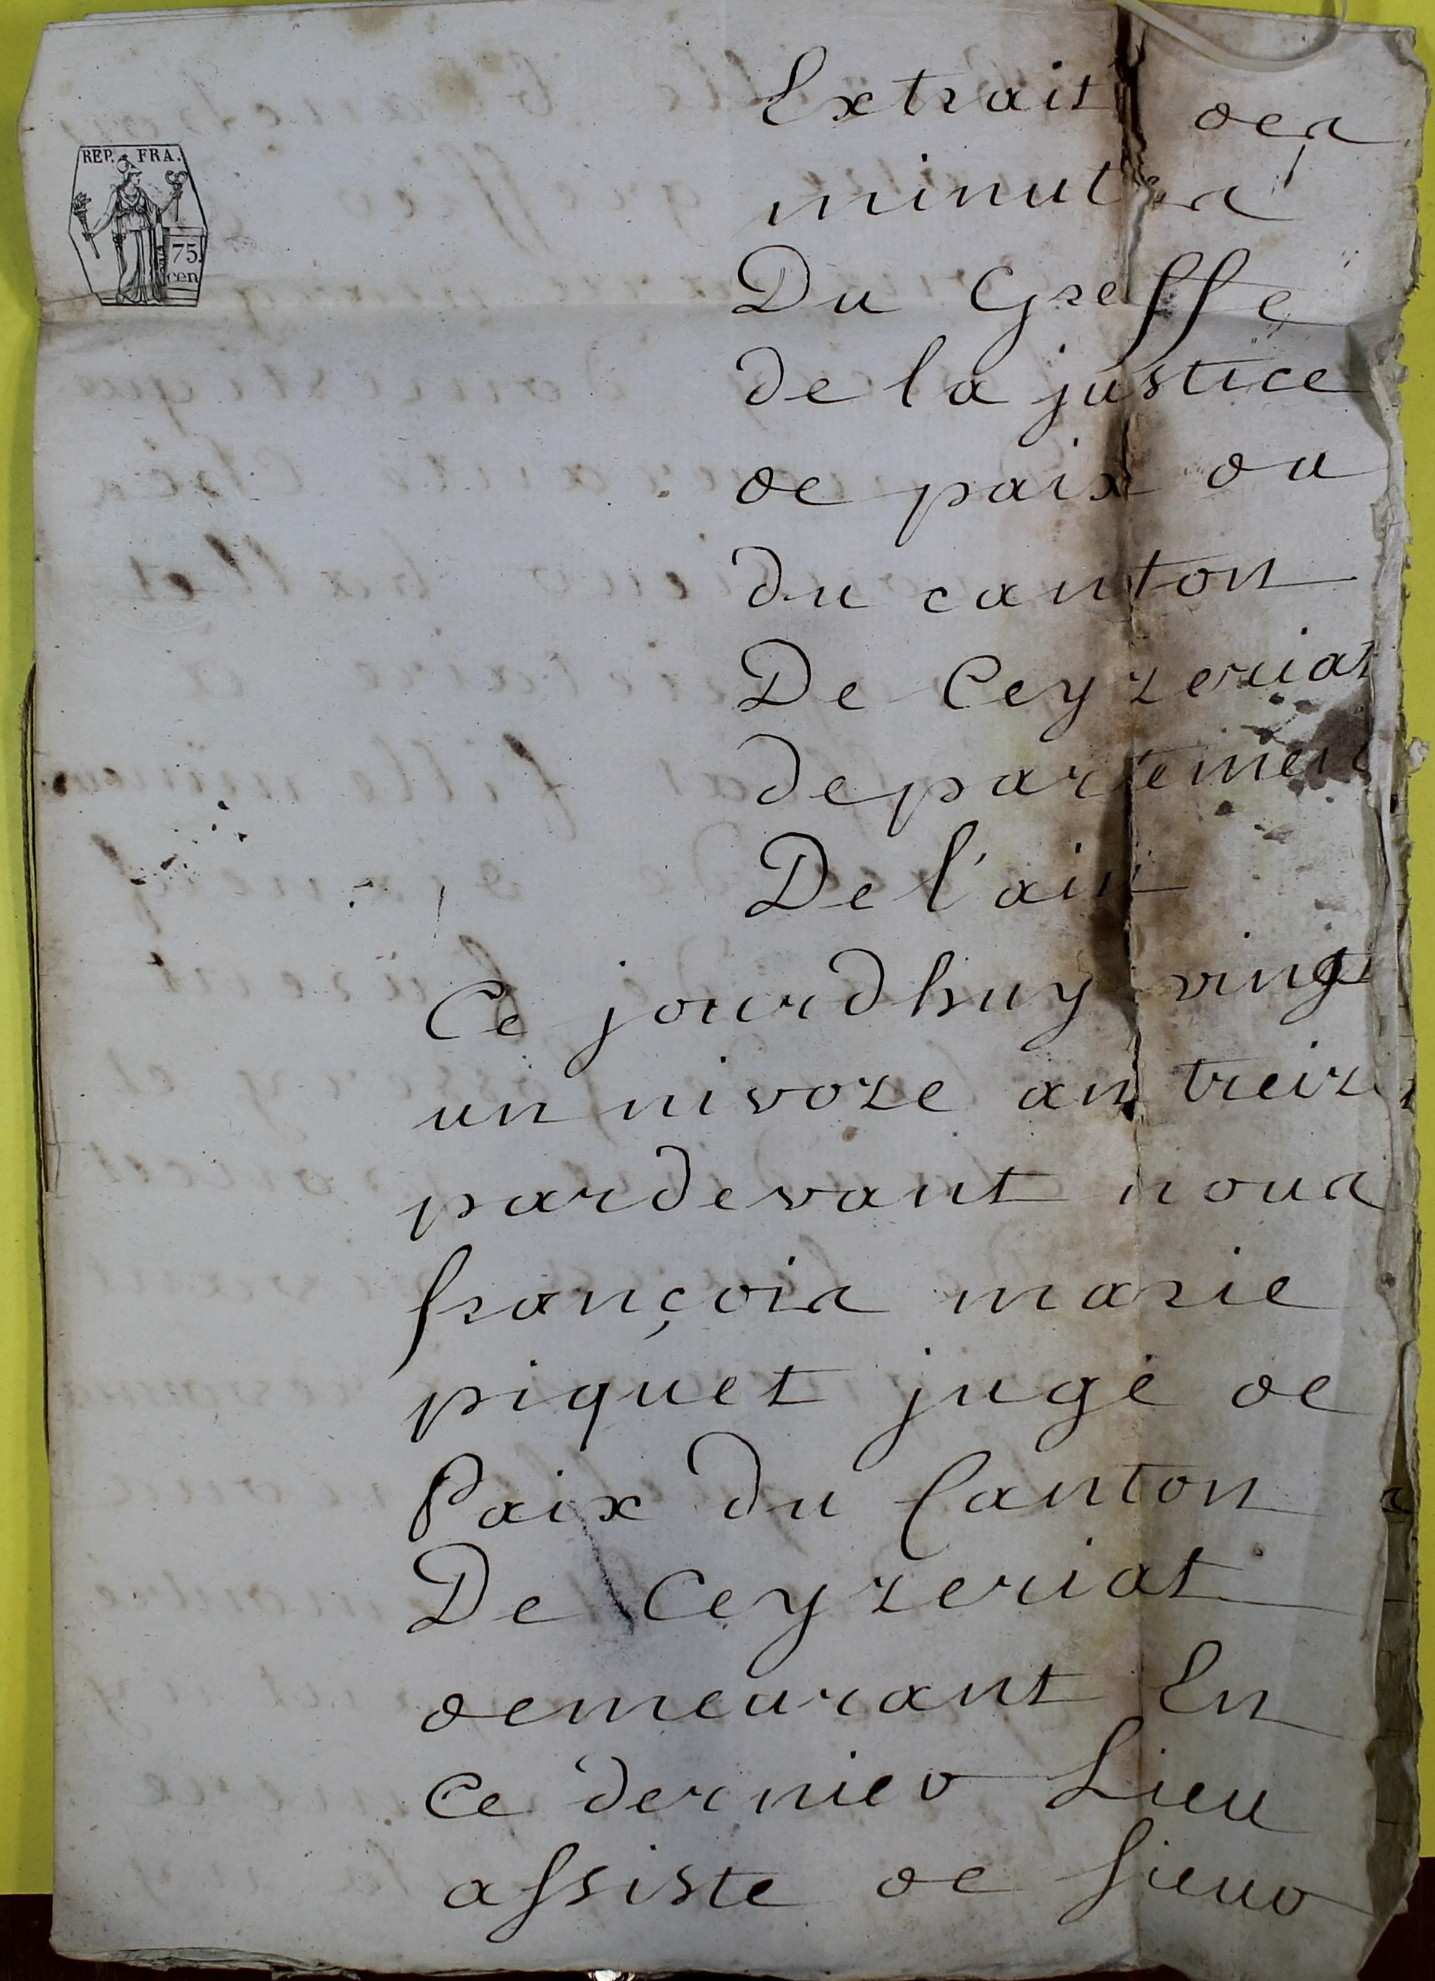 REP. FRA.
75.
cen
Extrait des
minutes
Du Greffe
de la justice
de paix du
du canton
De Ceyzeriat
departement
De l'ain
Ce jourdhuy vingt
un nivoze an treize
pardevant nous
françois marie
piquet juge de
Paix du Canton
De Ceyzeriat
demeurant En
ce dernier Lieu
assiste de sieur